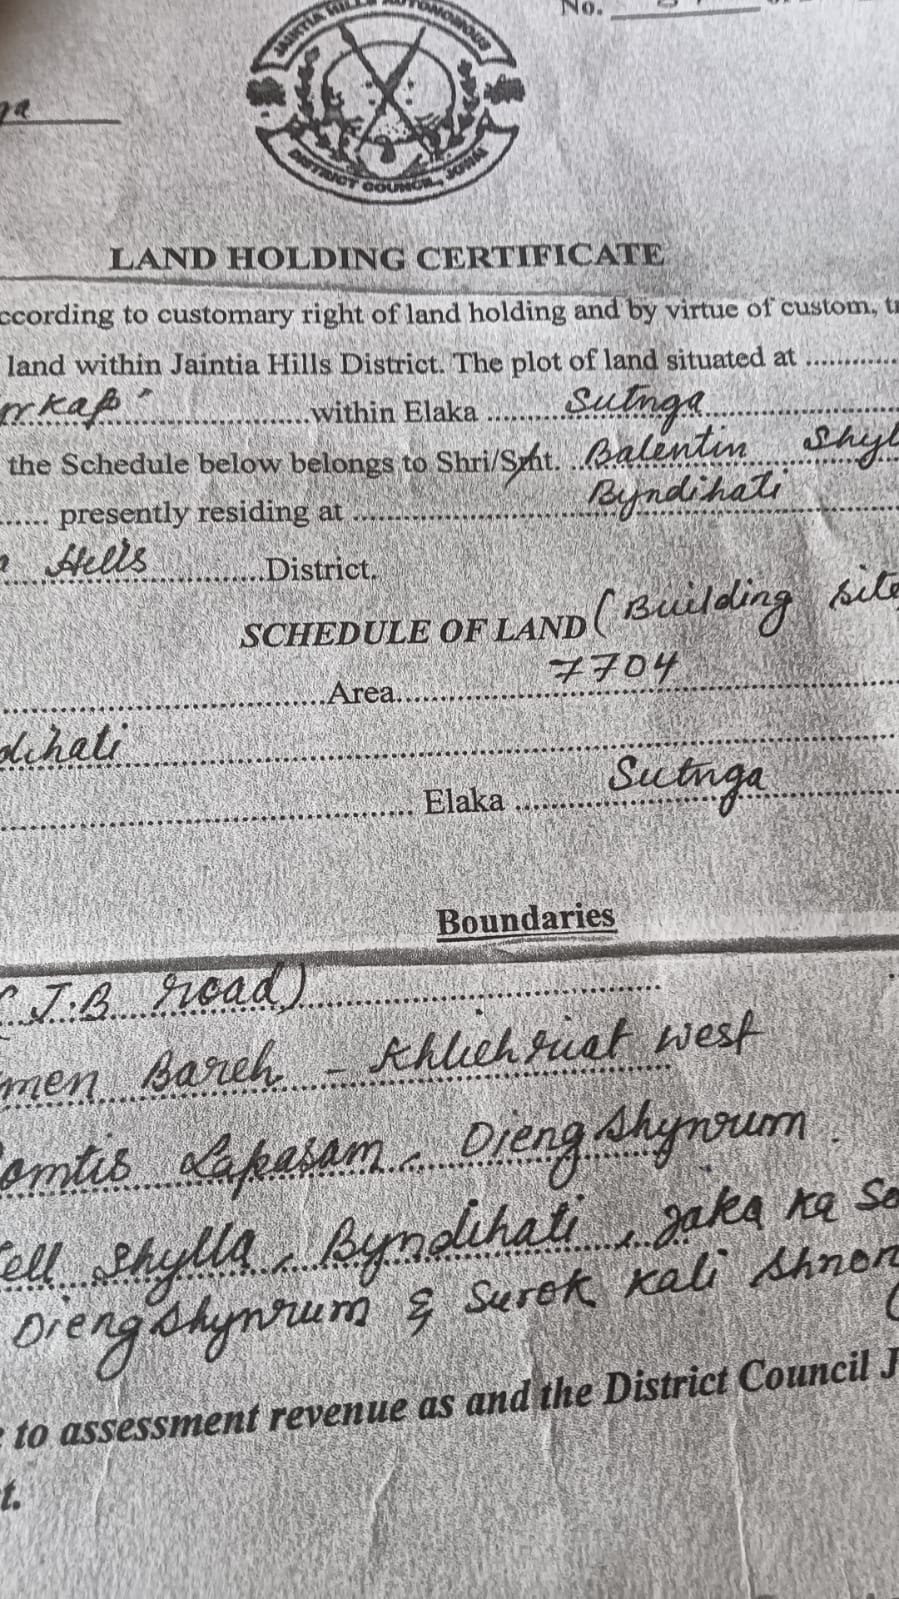 No.
JAINTIA HILLS AUTONOMOUS
DISTRICT COUNCIL, JOWAI
LAND HOLDING CERTIFICATE
ccording to customary right of land holding and by virtue of custom, tr
land within Jaintia Hills District. The plot of land situated at ............
rrkap ..................within Elaka ..........Sutnga..................
the Schedule below belongs to Shri/Smt. ..Balentin Shyl
...... presently residing at .................. Byndihati ..................
Hills ............District.
SCHEDULE OF LAND (Building site
..................Area.................. 7704 ..................
dihati ..................
.................. Elaka .......... Sutnga ..................
Boundaries
(J.B road)..................
men Bareh - Khliehriat west
omtis Lapasam, Dieng Shynrum.
ell Shylla, Byndihati, jaka ka Se
Dieng Shynrum & Surok Kali Shnon
to assessment revenue as and the District Council J
t.